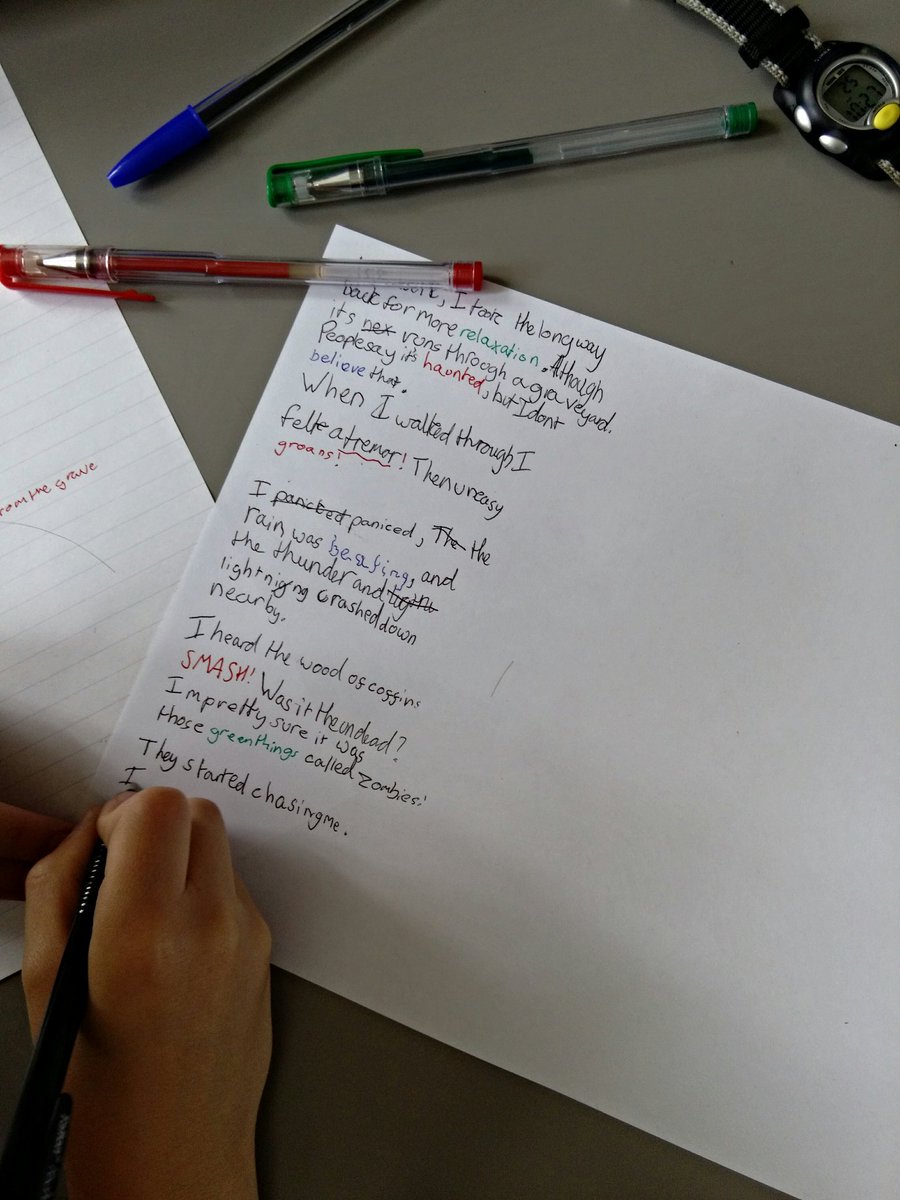 , I took the long way
back for more relaxation. Although
it's nex runs through a graveyard.
People say it's haunted, but I dont
believe that.
When I walked through I
felt a tremor! Then ureasy
groans!
I panicked paniced, The the
rain was, and
the thunder and
lightnigng crashed down
nearby.
I heard the wood of coffins
SMASH! Was it the undead?
Im pretty sure it was
those green things called zombies!
They started chasing me.
I
rom the grave